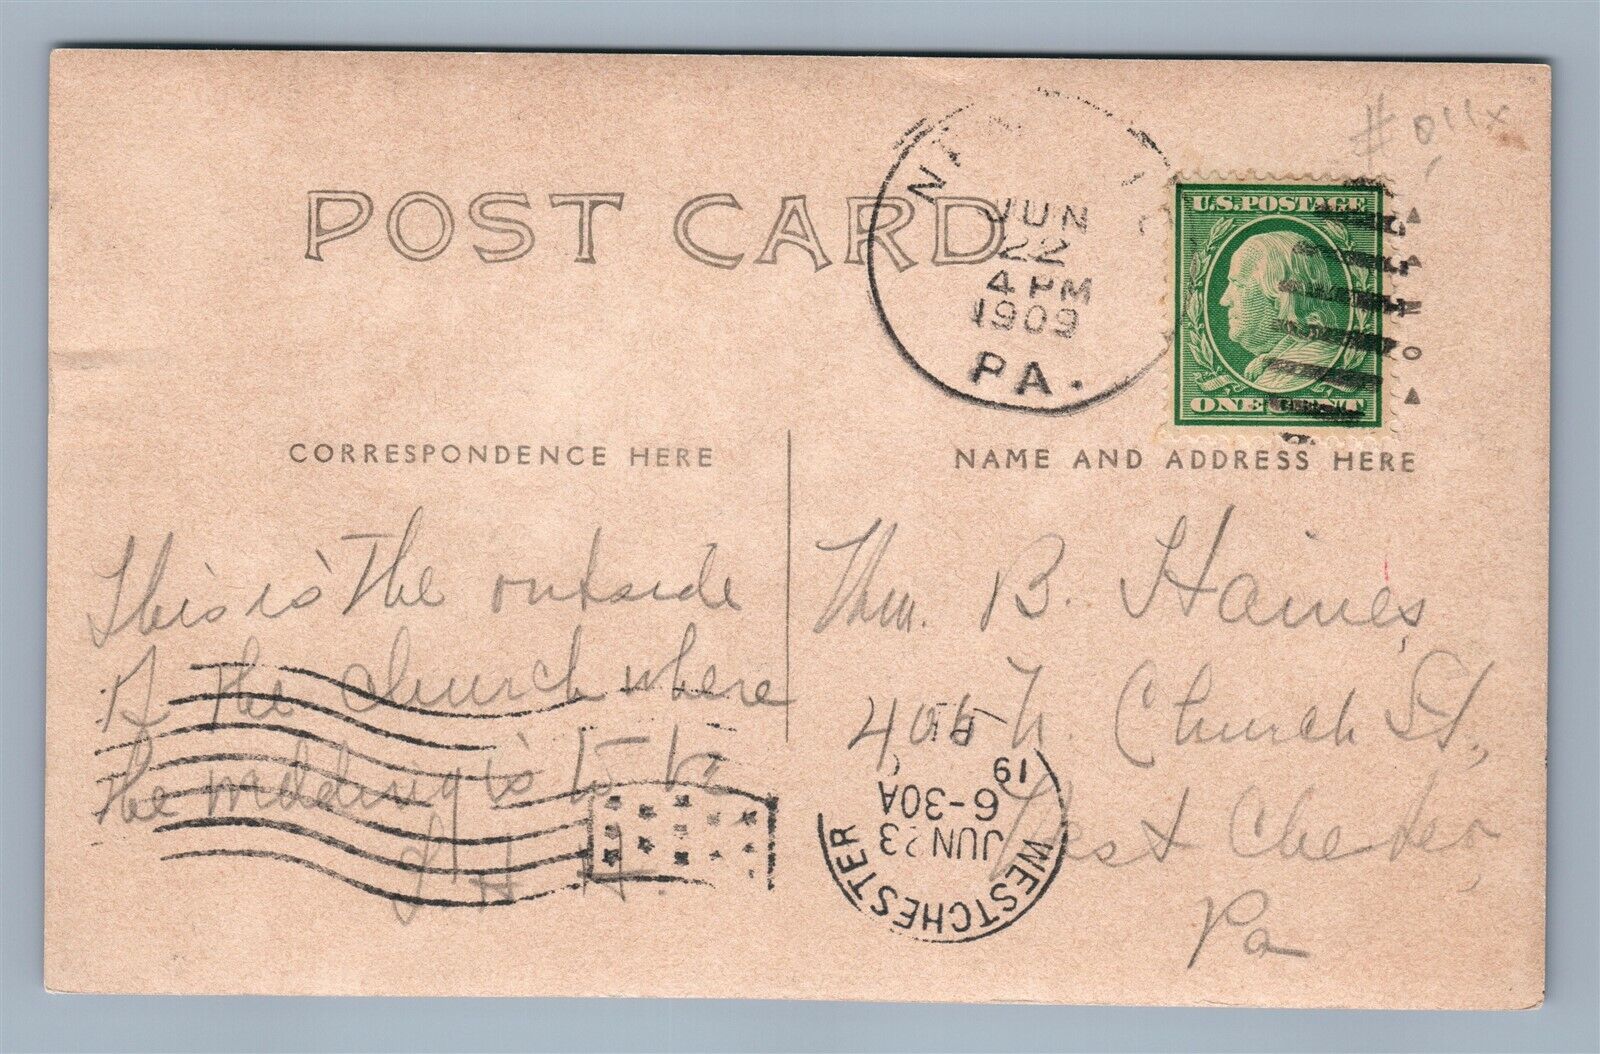 # 011x
POST CARD
JUN
22
4 PM
1909
PA.
U.S. POSTAGE
ONE CENT
CORRESPONDENCE HERE
NAME AND ADDRESS HERE
This is the outside
of the church where
the wedding is to be
H
B. Haines,
N. Church St.,
West Chester,
Pa
WESTCHESTER
JUN 23
6-30A
19
PA